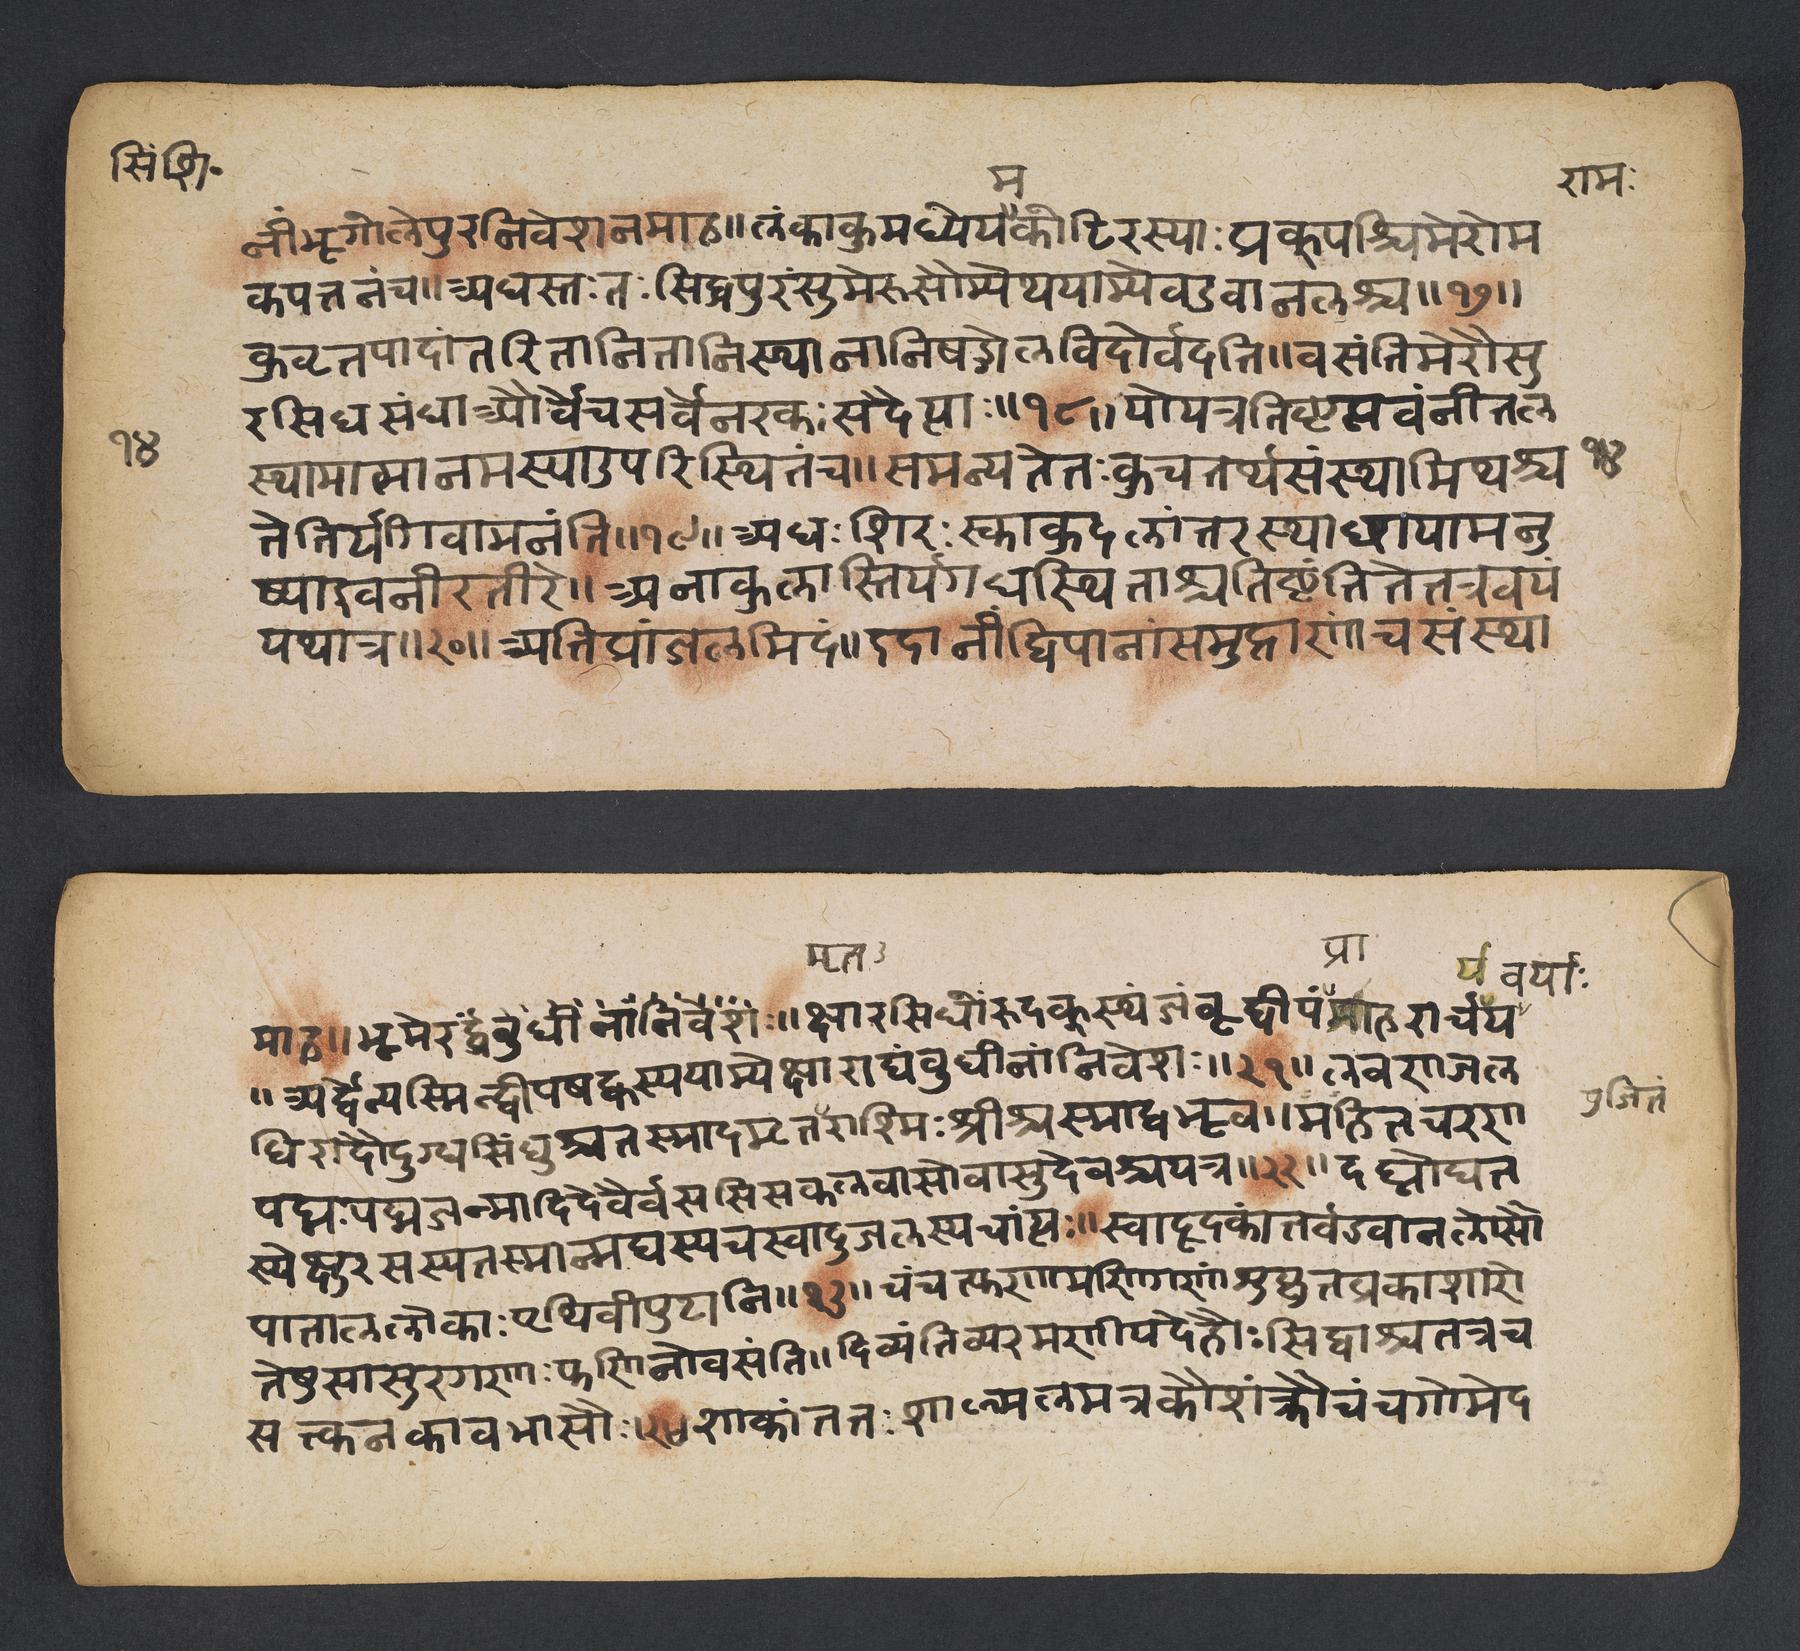 सिं शि॰
म
रामः
नीं भूगोलेपुरनिवेशनमाह॥ लंकाकुमध्येयकोटिरस्याः प्राक्पश्चिमेरोम
कपत्तनंच॥ अधस्तःतः सिद्धपुरंसुमेरूसौम्येथयाम्येवडवानलश्च॥१७॥
कुवृतपादांतरितानितानिस्थानानिषड्गोलविदोर्वदंति॥ वसंतिमेरौसु
रसिधसंघा और्वेचसर्वेनरकाः सदैत्याः॥१८॥ योयत्रतिष्टत्यवंनीतल
१४
स्थामात्मानमस्याउपरिस्थितंच॥ समन्यतेतः कुचतर्थसंस्थामिथश्च
१४
तेतिर्यगिवामनंति॥१९॥ अधः शिरः स्काकुदलांतरस्थाछायामनु
ष्याइवनीरतीरे॥ अनाकुलास्तिर्यगधस्थिताश्चतिष्टंतितेतत्रवयं
यथात्र॥२०॥ अतिप्रांजलमिदं॥ इदानींद्विपानांसमुद्राणांचसंस्था
मृत
प्रा
र्य वर्याः
माह॥ भूमेरर्द्धंवुधीनांनिवेशः॥ क्षारसिधोरुदकस्थंजंवूद्वीपंप्राहराचर्य
॥ अर्द्धेन्यस्मिन्द्वीपषट्कस्ययाम्येक्षाराद्यंवुधीनांनिवेशः॥२१॥ लवणजल
धिरादौदुग्धसिंधुश्चतस्मादमृतराश्मिः श्रीश्चस्माद्वभूव॥ महितचरण
पूजितं
पद्मः पद्मजन्मादिदेवैर्वससिसकलवासोवासुदेवश्चयत्र॥२२॥ दध्नोघृत
स्येक्षुरसस्यतस्मान्मद्यस्यचस्वादुजलस्यचांत्यः॥ स्वादूदकांतर्वडवानलोसौ
पाताललोकाः पृथिवीपुटानि॥२३॥ चंचत्फणामणिगणांशुकृतप्रकाशारो
तेषुसासुरगणाः फणिनोवसंति॥ दिव्यंतिव्यरमणीयदेहैः सिद्धाश्चतत्रच
सत्कनकावभासैः॥२४॥ शाकांततः शाल्मलमत्रकौशंक्रौचंचगोमेद